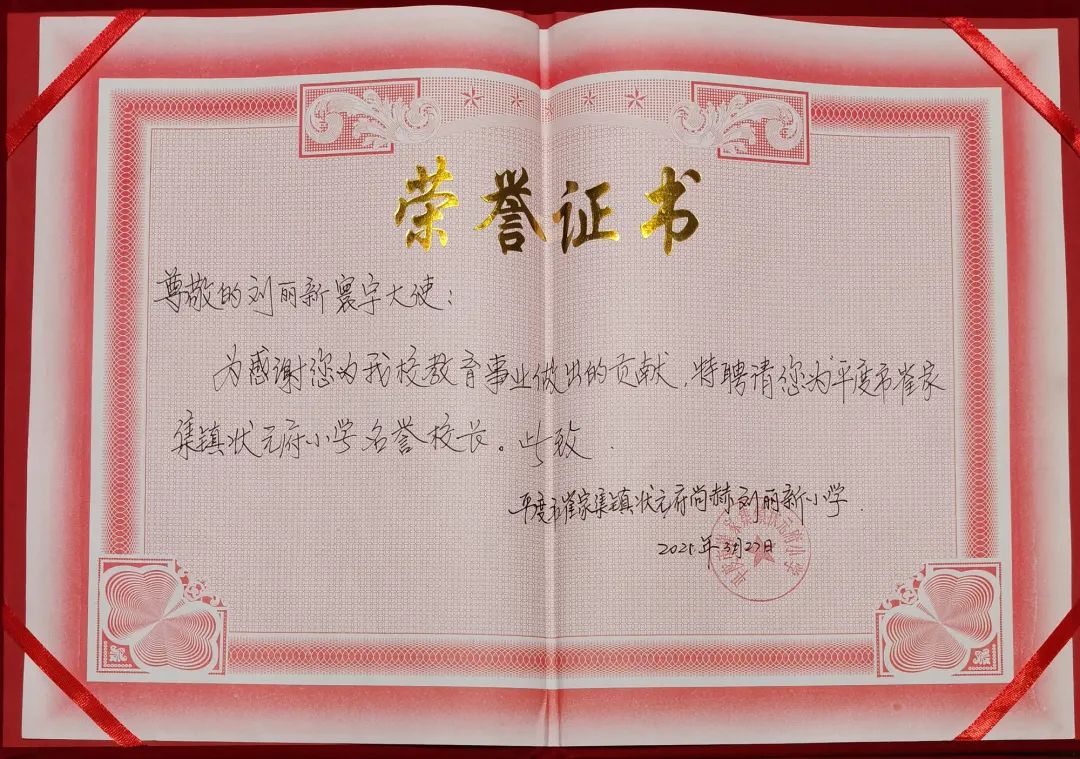 荣誉证书
尊敬的刘丽新寰宇大使：
为感谢您为我校教育事业做出的贡献，特聘请您为平度市崔家
集镇状元府小学名誉校长。此致
平度市崔家集镇状元府尚赫刘丽新小学
2021年3月27日